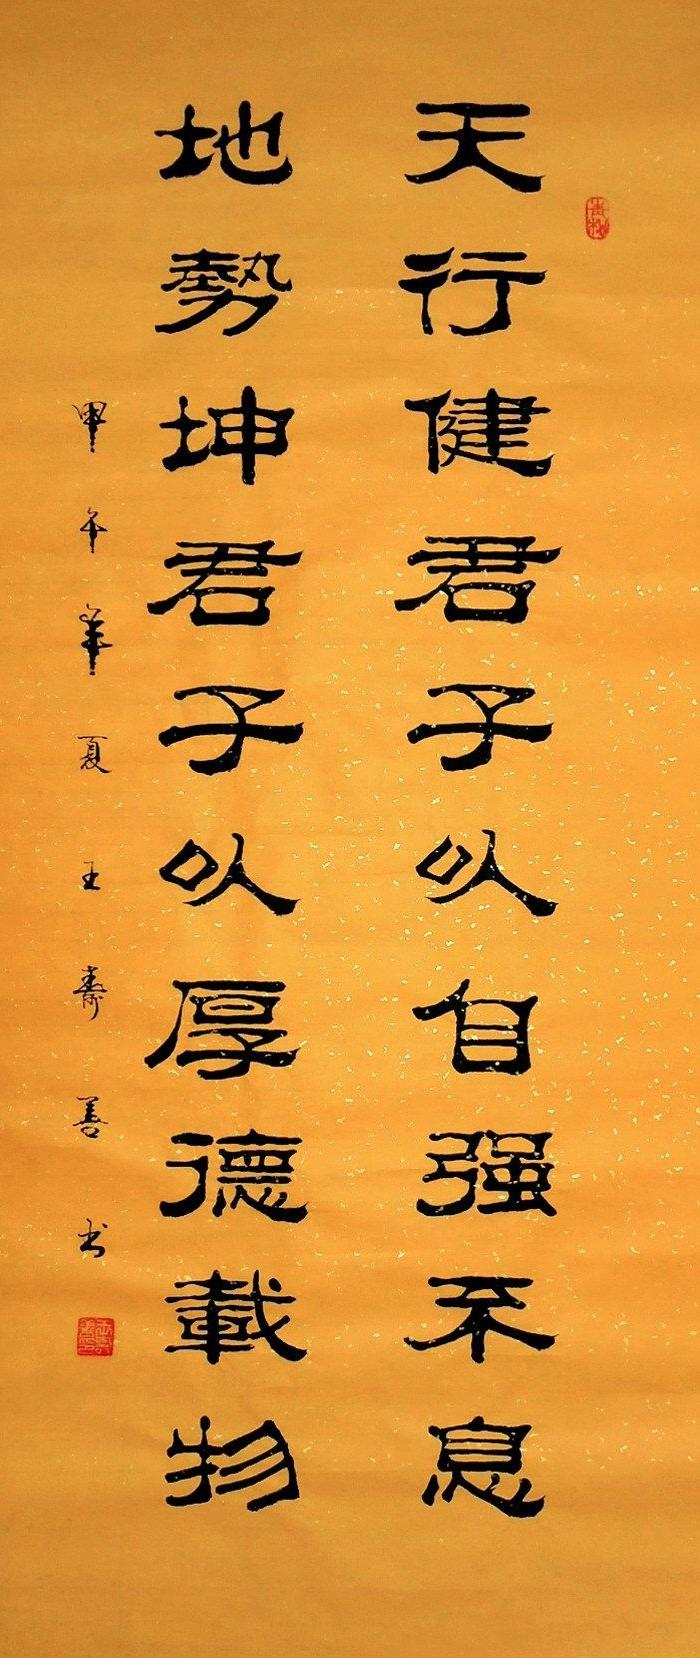 天行健君子以自强不息
地勢坤君子以厚德載物
甲午年夏王壽善书